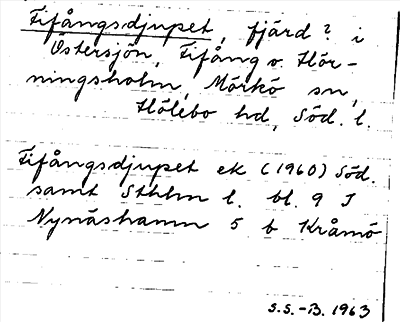 Fifångsdjupet, fjärd? i
Östersjön, Fifång o. Hör-
ningsholm, Mörkö sn,
Hölebo hd, Söd. l.
Fifångsdjupet ek (1960) Söd.
samt Sthlm l. bl. 9 I
Nynäshamn 5 b Kråmö
S.S.-B. 1963